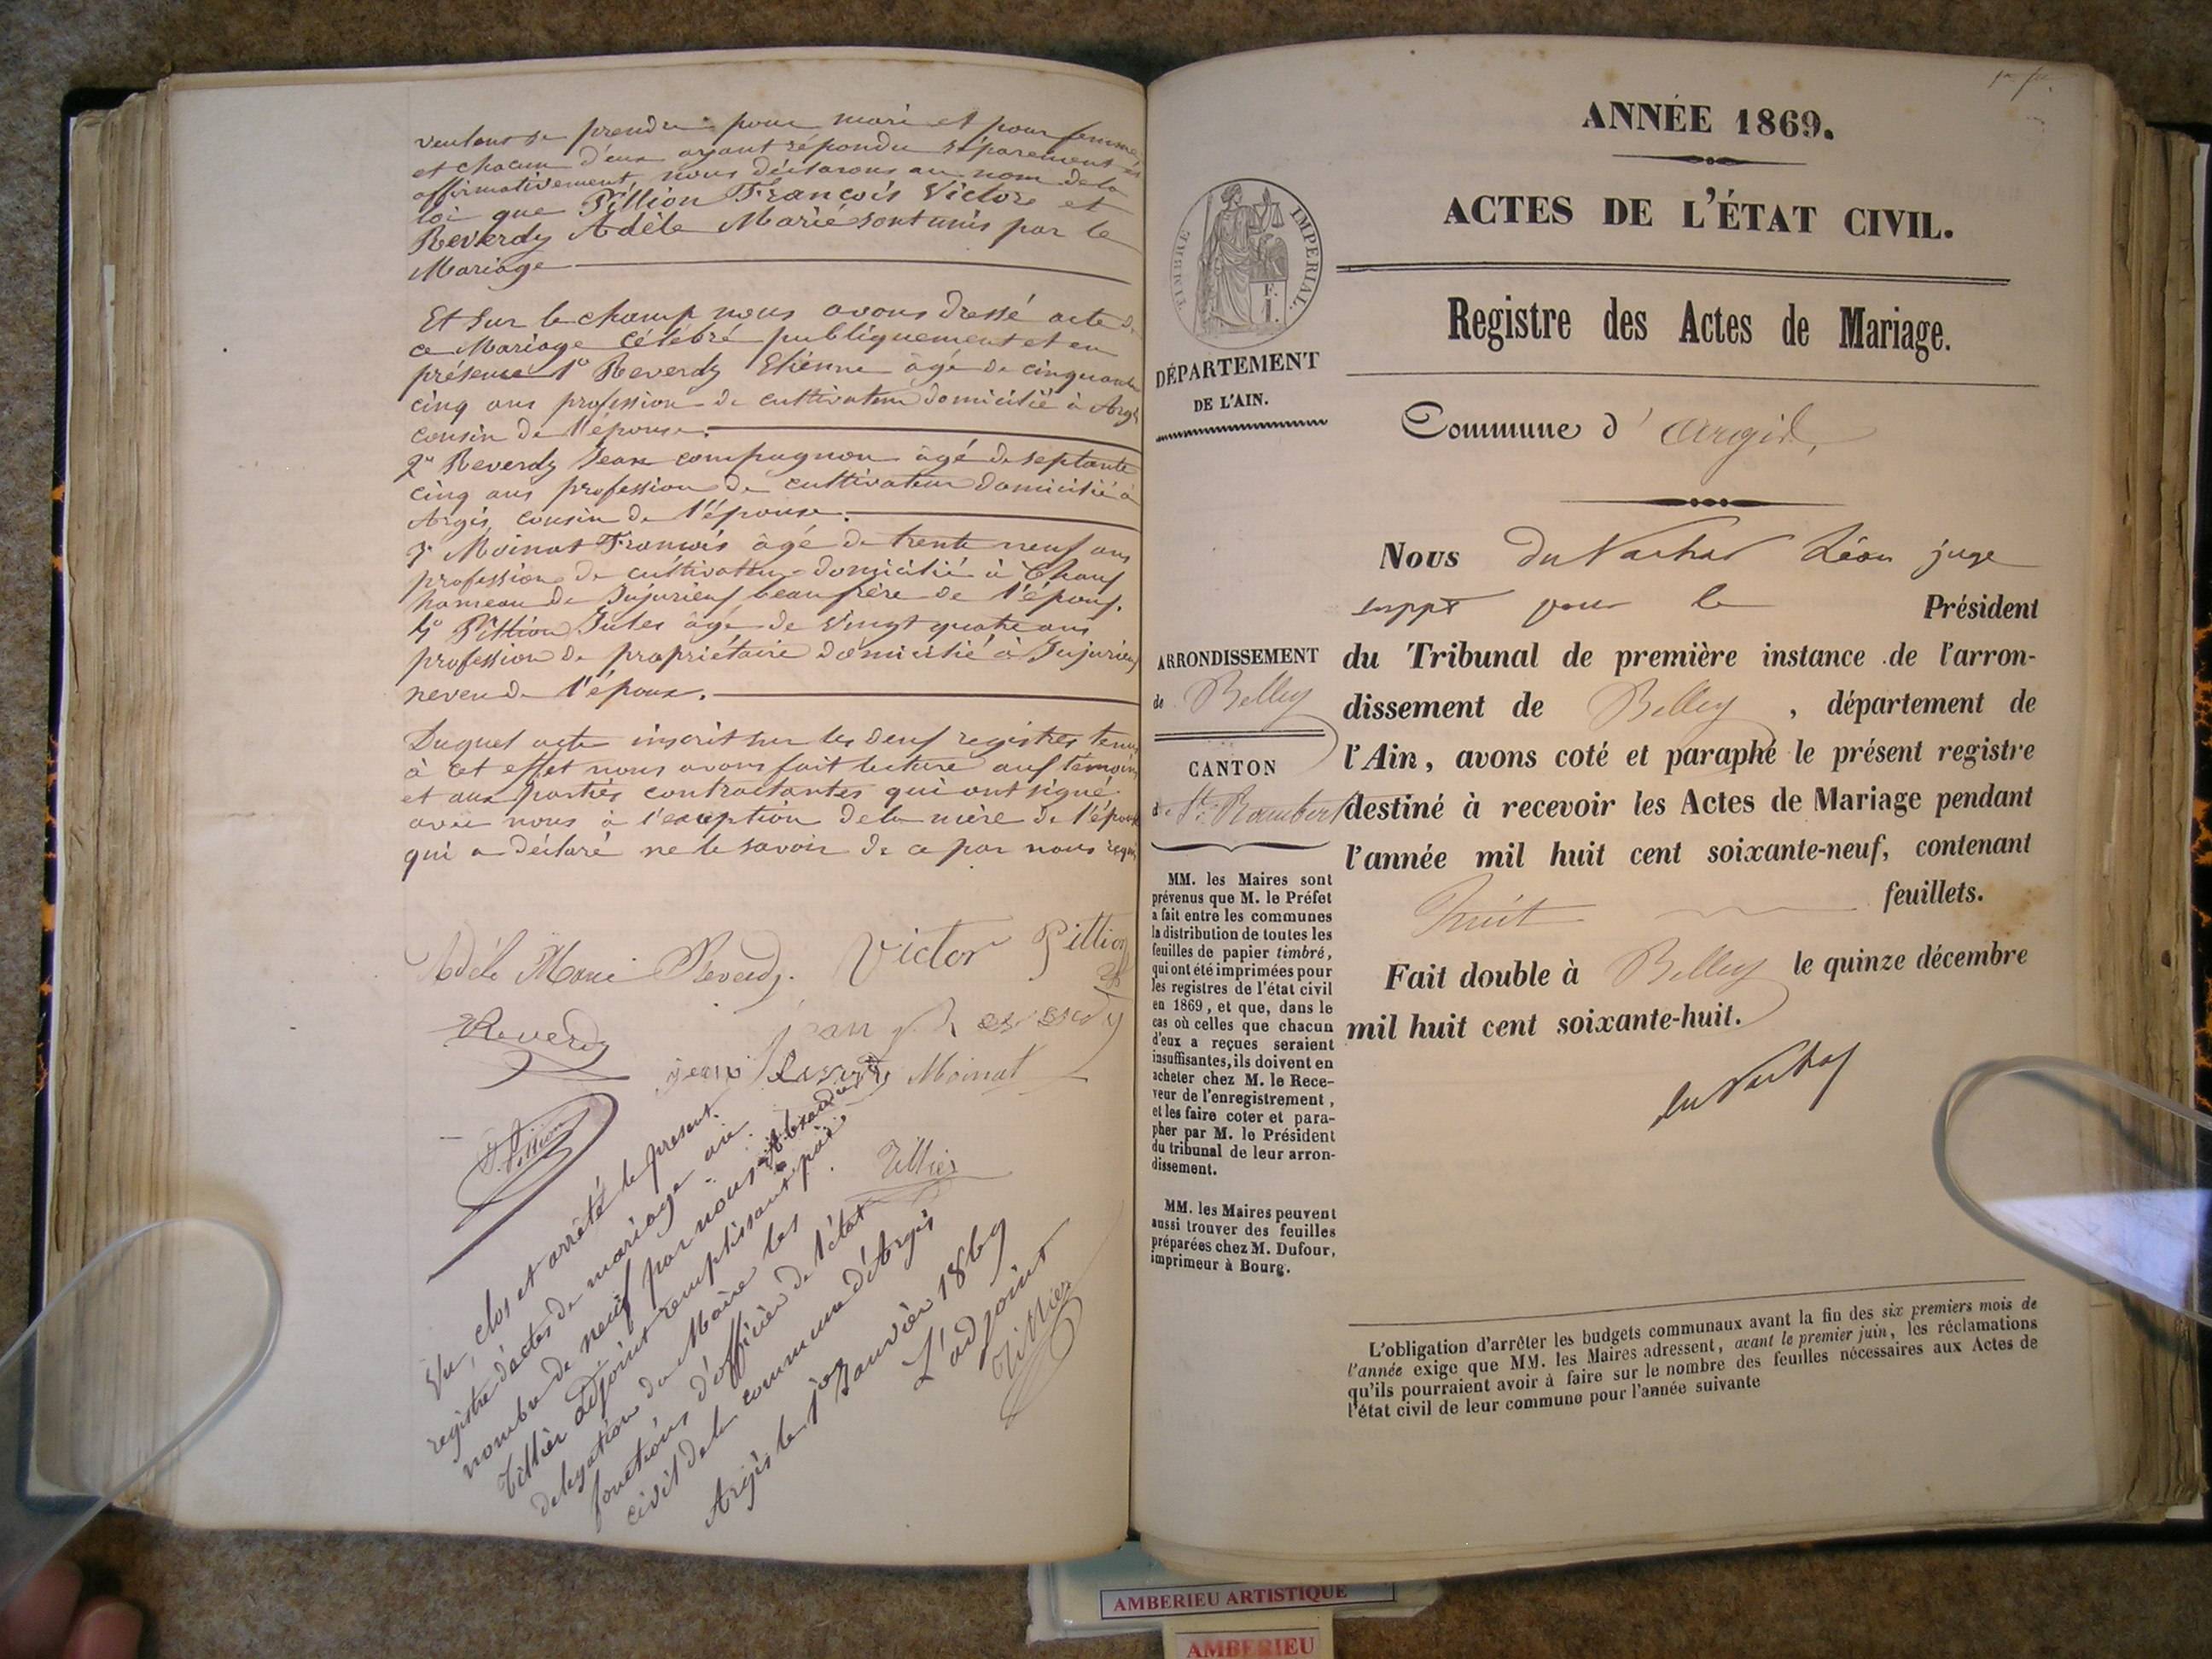 veulent se prendre pour mari et pour femme,
et chacun d'eux ayant répondu séparément et
affirmativement, nous déclarons au nom de la
loi que Pittion François Victor et
Reverdy Adèle Marie sont unis par le
Mariage
Et sur le champ nous avons dressé acte de
ce Mariage célébré publiquement et en
présence 1° Reverdy Etienne âgé de cinquante
cinq ans profession de cultivateur domicilié à Argis
cousin de l'épouse.
2° Reverdy Jean compagnon âgé de septante
cinq ans profession de cultivateur domicilié à
Argis, cousin de l'épouse.
3° Moinat François âgé de trente neuf ans
profession de cultivateur domicilié à Chaux
hameau de Jujurieux beaufrère de l'époux.
4° Pittion Jules âgé de vingt quatre ans
profession de propriétaire domicilié à Jujurieux
neveu de l'époux.
Duquel acte inscrit sur les deux registres tenus
à cet effet nous avons fait lecture aux témoins
et aux parties contractantes qui ont signé
avec nous à l'exception de la mère de l'époux
qui a déclaré ne le savoir de ce par nous requis
Adèle Marie Reverdy. Victor Pittion
Reverdy jean Reverdy
jean Moinat
J. Pittion
Tillier
Vu, clos et arrêté le présent
registre d'actes de mariage au
nombre de neuf par nous Alexandre
Tillier Adjoint remplissant par
délégation du Maire les
fonctions d'officier de l'état
civil de la commune d'Argis
Argis le 1er Janvier 1869
L'adjoint
Tillier
ANNÉE 1869.
ACTES DE L'ÉTAT CIVIL.
TIMBRE IMPÉRIAL.
Registre des Actes de Mariage.
DÉPARTEMENT
DE L'AIN.
Commune d'Argis,
Nous Léon juge
suppt pour le Président
ARRONDISSEMENT
de Belley
CANTON
de St Rambert
du Tribunal de première instance de l'arron-
dissement de Belley, département de
l'Ain, avons coté et paraphé le présent registre
destiné à recevoir les Actes de Mariage pendant
l'année mil huit cent soixante-neuf, contenant
huit feuillets.
Fait double à Belley le quinze décembre
mil huit cent soixante-huit.
MM. les Maires sont
prévenus que M. le Préfet
a fait entre les communes
la distribution de toutes les
feuilles de papier timbré,
qui ont été imprimées pour
les registres de l'état civil
en 1869, et que, dans le
cas où celles que chacun
d'eux a reçues seraient
insuffisantes, ils doivent en
acheter chez M. le Rece-
veur de l'enregistrement,
et les faire coter et para-
pher par M. le Président
du tribunal de leur arron-
dissement.
MM. les Maires peuvent
aussi trouver des feuilles
préparées chez M. Dufour,
imprimeur à Bourg.
L'obligation d'arrêter les budgets communaux avant la fin des six premiers mois de
l'année exige que MM. les Maires adressent, avant le premier juin, les réclamations
qu'ils pourraient avoir à faire sur le nombre des feuilles nécessaires aux Actes de
l'état civil de leur commune pour l'année suivante
AMBERIEU ARTISTIQUE
AMBERIEU